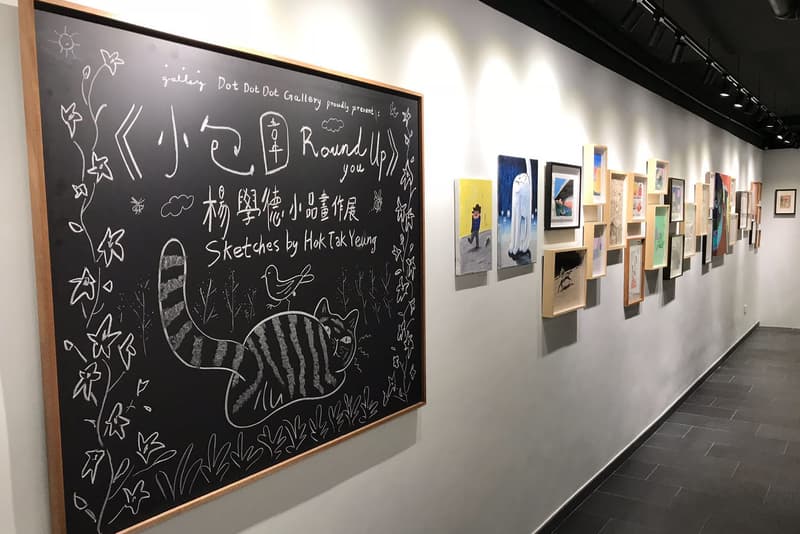 gallery Dot Dot Dot Gallery proudly present :
《小包圍 Round you Up》
楊學德小品畫作展
Sketches by Hok Tak Yeung